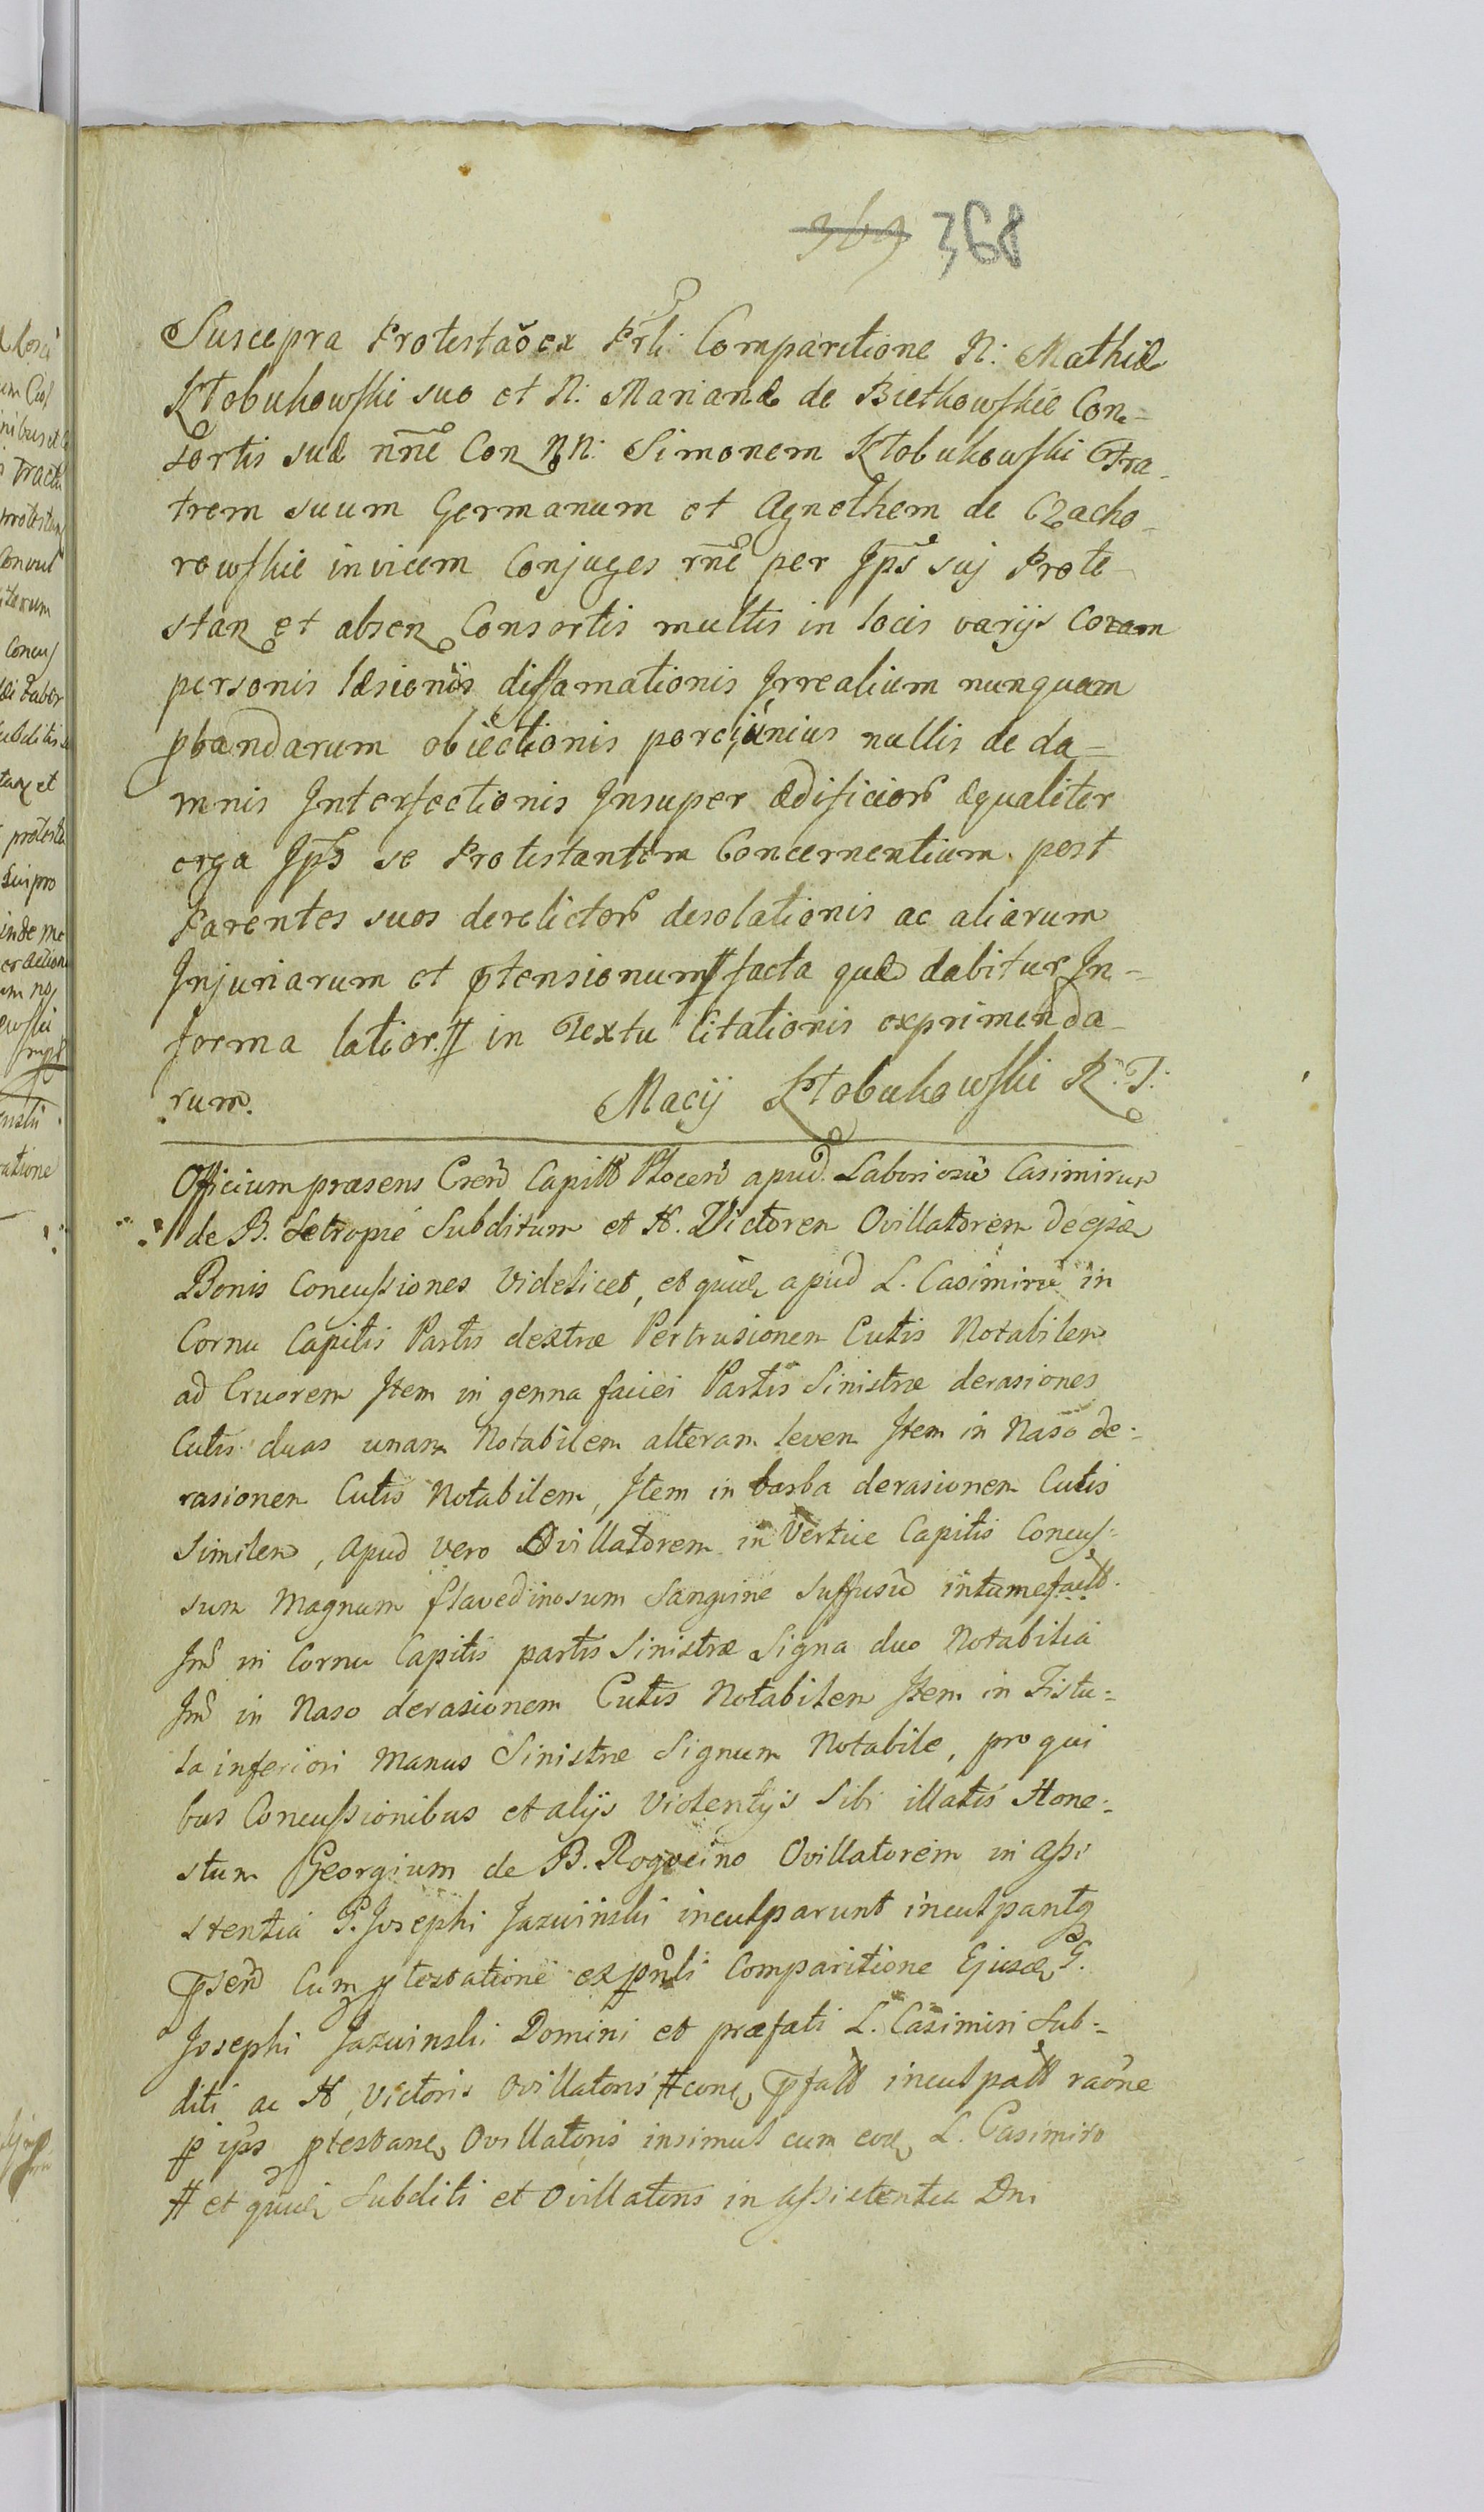 369 368
Suscepra Protestao ex Prli Comparitione N: Mathiæ
Kłobukowski suo et N: Marianæ de Biethowskie Con=
sortis suæ nne Con NN: Simonem Kłobukowski Fra-
trem suum Germanum et Agnethem de Czacho-
rowskie invicem Conjuges rne per Ips suj Prote-
stan et absen Consortis multis in locis varijs Coram
personis læsionis diffamationis Irrealium nunquam
pbandarum obiectionis nullis de da=
mnis Interfectionis Insuper ædificior æqualiter
erga Ips se Protestantem Concernentium post
Parentes suos derelictor desolationis ac aliarum
Injuriarum et ptensionum # facta quæ dabitur In-
forma latior. # in Textu Citationis exprimenda-
rum. Macij Kłobukowski R. T.
Officium præsens Cren Capitt Plocen apud Laboriosu Casimirum
de B. Setropie Subditum et H. Victorem Ovillatorem de ejsæ
Bonis Concussiones Videlicet, et quid apud L. Casimiru in
Cornu Capitis Partis dextræ Pertrusionem Cutis Notabilem
ad Cruorem Item in genna faciei Partis Sinistræ derasiones
Cutis duas unam Notabilem alteram levem Item in Naso de-
rasionem Cutis Notabilem, Item in barba derasionem Cutis
Similem, apud vero Ovillatorem in Vertice Capitis Concus-
sum Magnum flavedinosum Sanguine Suffusu intumefactt.
Itm in Cornu Capitis partis Sinistræ Signa duo Notabilia
Itm in Naso derasionem Cutis Notabilem Item in Fistu=
la inferiori Manus Sinistræ Signum Notabile, pro qui
bus Concussionibus et alijs Violentijs Sibi illatis Hone-
stum Georgium de B. Rogocino Ovillatorem in assi
stentia G. Josephi Jazwinski inculparunt inculpantq
psen Cum ptestatione ex pnli Comparitione Ejusd G.
Josephi Jazwinski Domini et præfati L. Casimiri Sub=
diti ac H. Victoris Ovillatoris # con pfatt inculpatt raone
p ips ptestan Ovillatoris insimul cum eod L. Casimiro
# et Subditi et Ovillatoris in assistentia Dni